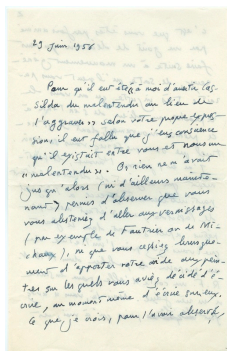 29 juin 1956
Pour qu'il eût été à moi d'avoir
du malentendu au lieu de
l'« aggraver » selon votre propre expres-
sion, il eût fallu que j'eus conscience
qu'il existait entre vous et nous un
« malentendu ». Or, rien ne m'avait
jusqu'alors (ni d'ailleurs mainte-
nant) permis d'observer que vous
vous absteniez d'aller aux vernissages
(par exemple de Fautrier ou de Mi-
chaux), ni que vous cessiez brusque-
ment d'apporter votre aide aux pein-
tres sur lesquels vous aviez décidé d'é-
crire, au moment même d'écrire sur eux.
Ce que je crois, pour l'avoir observé,